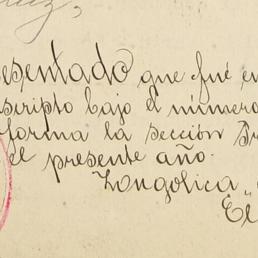 esentado que fué en
scripto bajo el número
forma la sección
el presente año.
Zongolica,
El